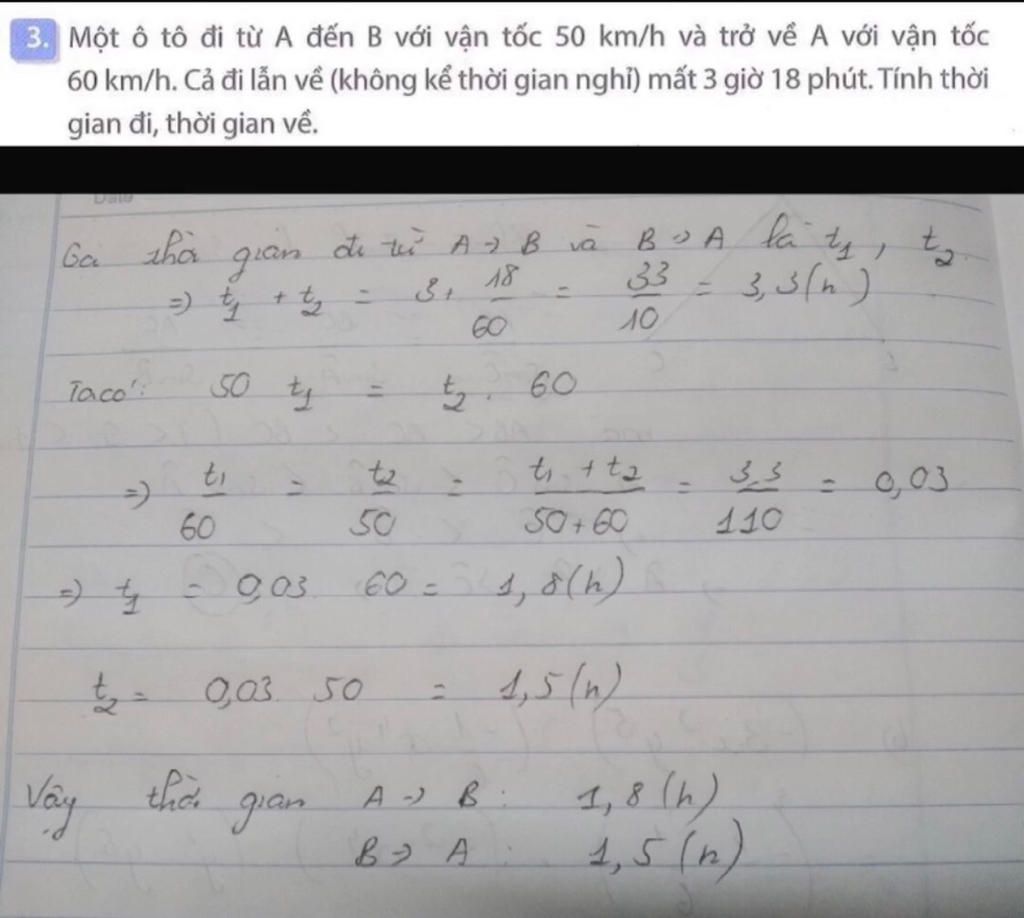 3. Một ô tô đi từ A đến B với vận tốc 50 km/h và trở về A với vận tốc
60 km/h. Cả đi lẫn về (không kể thời gian nghỉ) mất 3 giờ 18 phút. Tính thời
gian đi, thời gian về.
Date
Gọi thời gian đi từ A → B và B → A là t₁, t₂
⇒ t₁ + t₂ = 3 + 18/60 = 33/10 = 3,3 (h)
Ta có: 50 t₁ = t₂ . 60
⇒ t₁/60 = t₂/50 = (t₁ + t₂)/(50 + 60) = 3,3/110 = 0,03
⇒ t₁ = 0,03 60 = 1,8 (h)
t₂ = 0,03 50 = 1,5 (h)
Vậy thời gian A → B : 1,8 (h)
B → A : 1,5 (h)